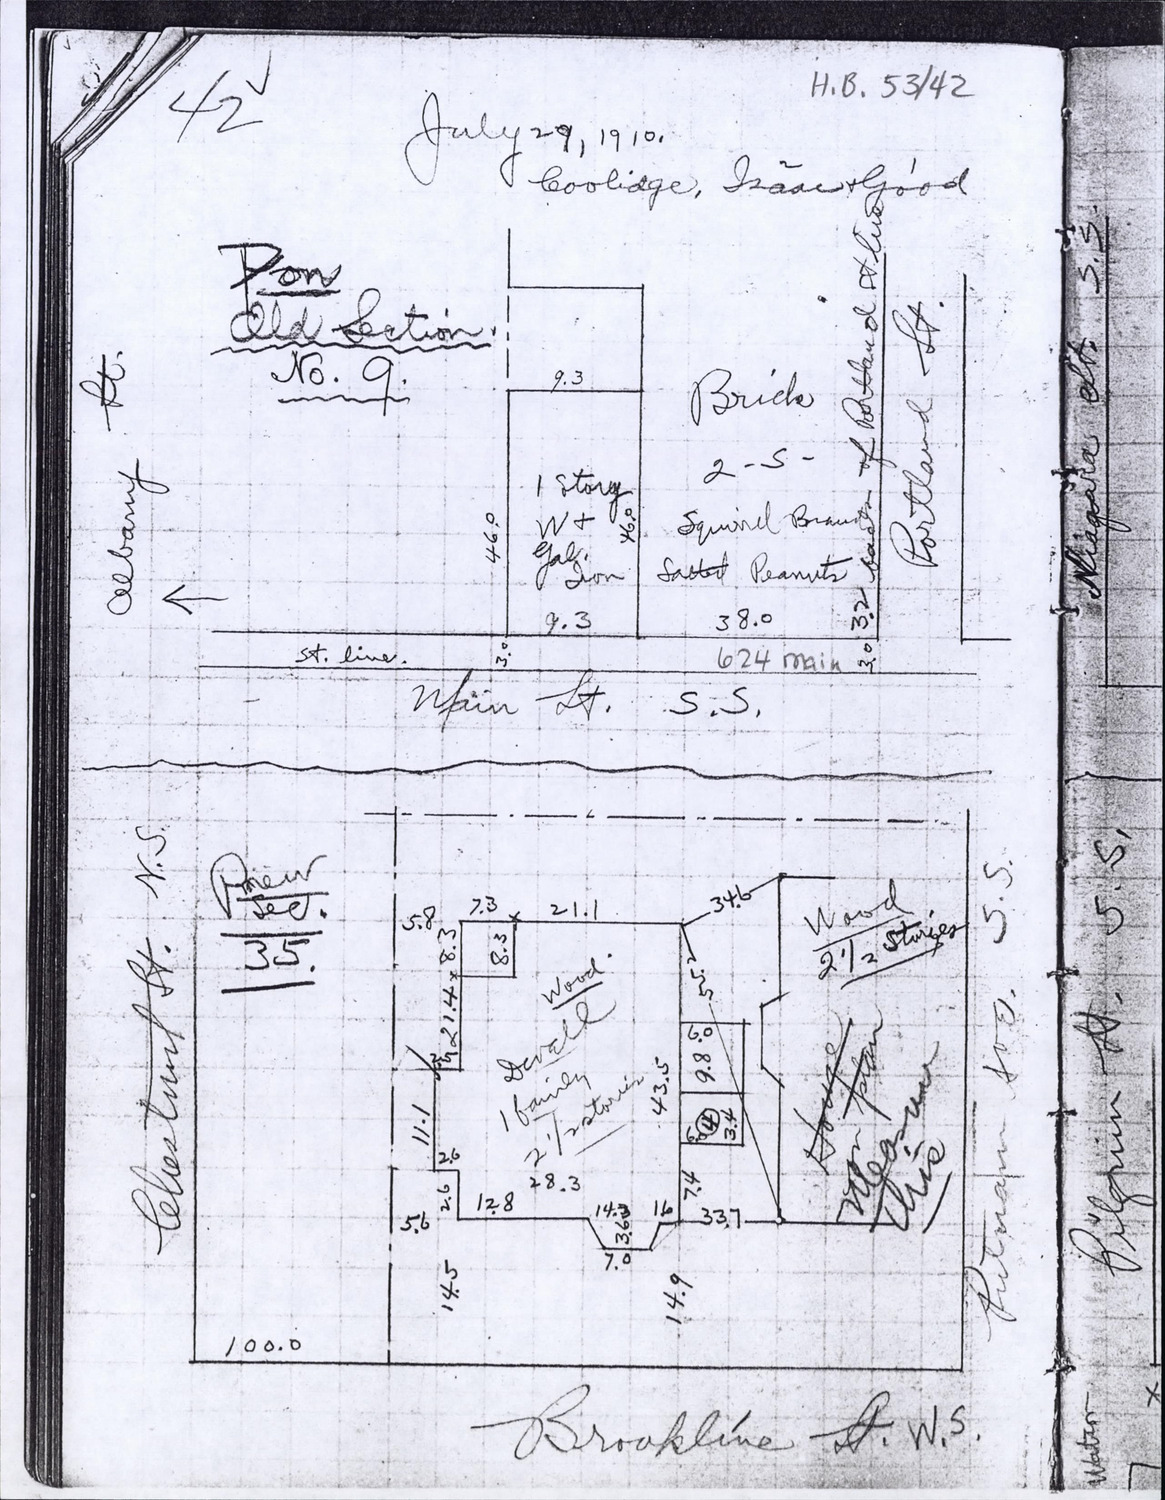 42
H.B. 53/42
July 29, 1910.
Coolidge, Isaac & Good
Pon
Old Section.
No. 9.
Albany St.
9.3
Brick
2 - S -
Squirrel Brand
Salted Peanuts
38.0
1 Story
W +
Gal.
Iron
9.3
46.0
46.0
3.2 back of Portland St line
Portland St.
st. line.
3.0
624 main
3.0
Main St. S.S.
Chestnut St. N.S.
P new
Sec.
35.
5.8
7.3
21.1
34.6
8.3
8.3
21.4
Wood.
Devall
1 family
2 1/2 stories
28.3
55.2
6.0
9.8
43.5
4
3.4
7.4
11.1
2.6
2.6
5.6
12.8
14.3
3.6
16
33.7
7.0
14.5
14.9
Wood
2 1/2 Stories
House
on plan
measure
this
Putnam Ave. S.S.
100.0
Brookline St. W.S.
Niagara St. S.S.
Pilgrim St. S.S.
Water
7
x